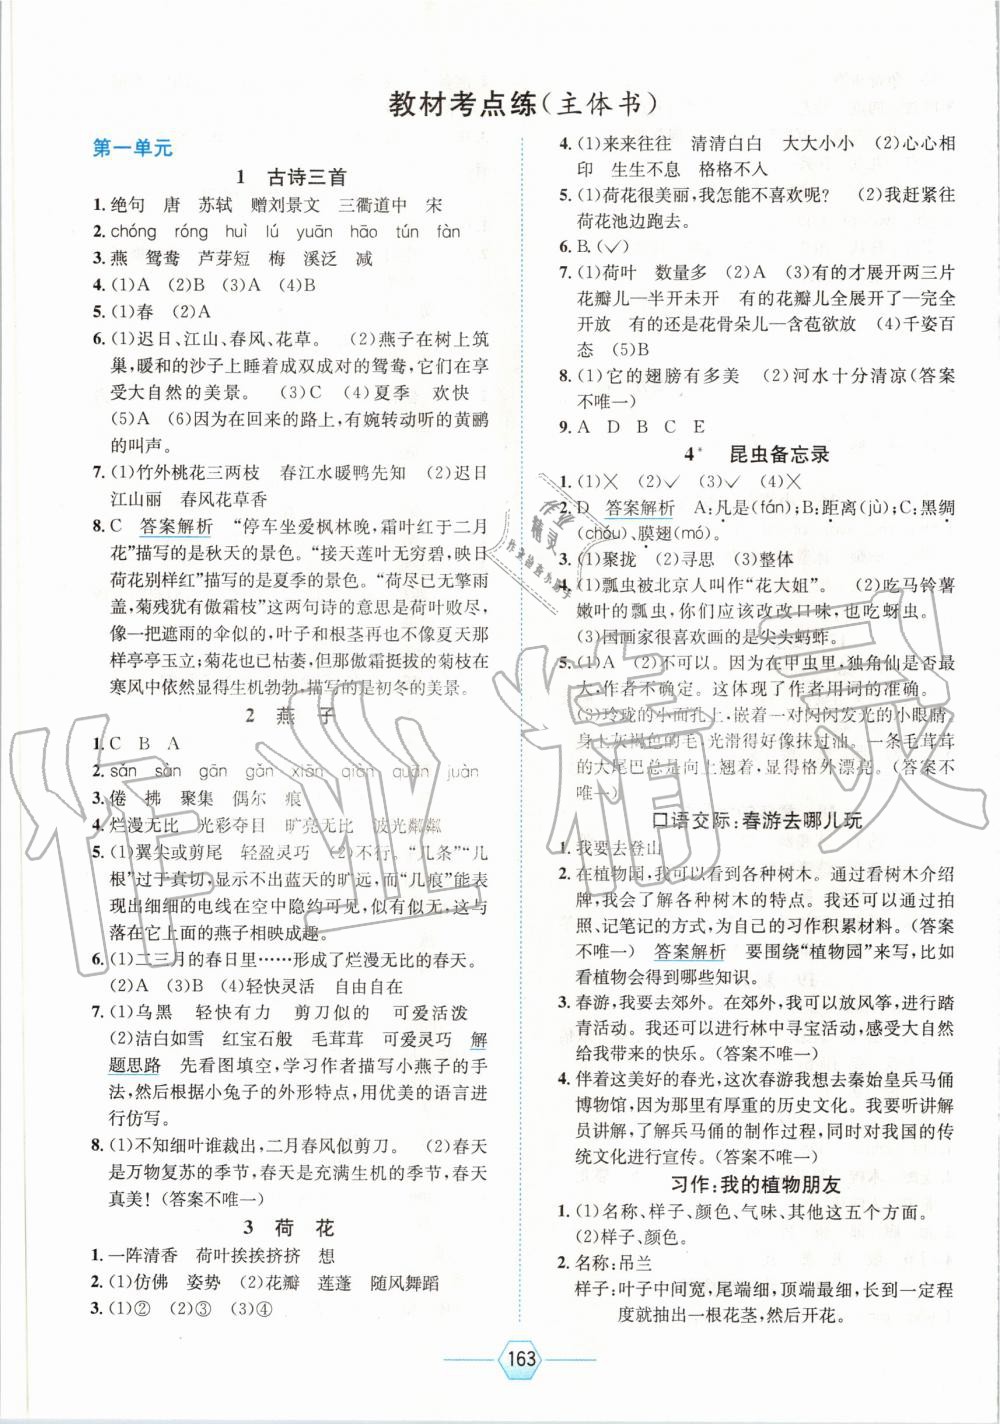 教材考点练(主体书)
第一单元
1 古诗三首
1.绝句 唐 苏轼 赠刘景文 三衢道中 宋
2.chóng róng huì lú yuān hāo tún fàn
3.燕 鸳鸯 芦芽短 梅 溪泛 减
4.(1)A (2)B (3)A (4)B
5.(1)春 (2)A
6.(1)迟日、江山、春风、花草。 (2)燕子在树上筑
巢,暖和的沙子上睡着成双成对的鸳鸯,它们在享
受大自然的美景。 (3)C (4)夏季 欢快
(5)A (6)因为在回来的路上,有婉转动听的黄鹂
的叫声。
7.(1)竹外桃花三两枝 春江水暖鸭先知 (2)迟日
江山丽 春风花草香
8.C 答案解析 “停车坐爱枫林晚,霜叶红于二月
花”描写的是秋天的景色。“接天莲叶无穷碧,映日
荷花别样红”描写的是夏天的景色。“荷尽已无擎雨
盖,菊残犹有傲霜枝”这两句诗的意思是荷叶败尽,
像一把遮雨的伞似的,叶子和根茎再也不像夏天那
样亭亭玉立;菊花也已枯萎,但那傲霜挺拔的菊枝在
寒风中依然显得生机勃勃,描写的是初冬的美景。
2 燕子
1.C B A
2.sǎn sàn gān gǎn xiān qiàn quān juàn
3.倦 拂 聚集 偶尔 痕
4.烂漫无比 光彩夺目 旷亮无比 波光粼粼
5.(1)翼尖或剪尾 轻盈灵巧 (2)不行。“几条”“几
根”过于真切,显示不出蓝天的旷远,而“几痕”能
表现出细细的电线在空中隐约可见,似有似无,这与
落在它上面的燕子相映成趣。
6.(1)二三月的春日里……形成了烂漫无比的春天。
(2)A (3)B (4)轻快灵活 自由自在
7.(1)乌黑 轻快有力 剪刀似的 可爱活泼
(2)洁白如雪 红宝石般 毛茸茸 可爱灵巧 解
题思路 先看图填空,学习作者描写小燕子的手
法,然后根据小兔子的外形特点,用优美的语言进
行仿写。
8.(1)不知细叶谁裁出,二月春风似剪刀。 (2)春天
是万物复苏的季节,春天是充满生机的季节,春天
真美!(答案不唯一)
3 荷花
1.一阵清香 荷叶挨挨挤挤 想
2.(1)仿佛 姿势 (2)花瓣 莲蓬 随风舞蹈
3.(1)② (2)③ (3)④
4.(1)来来往往 清清白白 大大小小 (2)心心相
印 生生不息 格格不入
5.(1)荷花很美丽,我怎能不喜欢呢? (2)我赶紧往
荷花池边跑去。
6.B.(✓)
7.(1)荷叶 数量多 (2)A (3)有的才展开两三片
花瓣儿—半开未开 有的花瓣儿全展开了—完全
开放 有的还是花骨朵儿—含苞欲放 (4)千姿百
态 (5)B
8.(1)它的翅膀有多美 (2)河水十分清凉(答案
不唯一)
9.A D B C E
4* 昆虫备忘录
1.(1)× (2)✓ (3)✓ (4)×
2.D 答案解析 A:凡是(fán);B:距离(jù);C:黑绸
(chóu)、膜翅(mó)。
3.(1)聚拢 (2)寻思 (3)整体
4.(1)瓢虫被北京人叫作“花大姐”。 (2)吃马铃薯
嫩叶的瓢虫,你们应该改改口味,也吃蚜虫。
(3)国画家很喜欢画的是尖头蚂蚱。
5.(1)A (2)不可以。因为在甲虫里,独角仙是否最
大,作者不确定。这体现了作者用词的准确。
(3)玲珑的小面孔上,镶嵌着一对闪闪发光的小眼睛,
身上灰褐色的毛,光滑得好像抹过油。一条毛茸茸
的大尾巴总是向上翘着,显得格外漂亮。(答案不
唯一)
口语交际:春游去哪儿玩
1.我要去卷山
2.在植物园,我可以看到各种树木。通过看树木介绍
牌,我会了解各种树木的特点。大家可以通过拍
照、记笔记的方式,为自己的习作积累材料。(答案
不唯一) 答案解析 要围绕“植物园”来写,比如
看植物会得到哪些知识。
3.春游,我要去郊外。在郊外,我可以放风筝,进行踏
青活动。我要进行林中寻宝活动,感受大自然
给我带来的快乐。(答案不唯一)
4.伴着这美好的春光,这次春游我想去秦始皇兵马俑
博物馆,因为那里有厚重的历史文化。我要听讲解
员讲解,了解兵马俑的制作过程,同时对我国的传
统文化进行宣传。(答案不唯一)
习作:我的植物朋友
1.(1)名称、样子、颜色、气味、其他这五个方面。
(2)样子、颜色。
2.名称:吊兰
样子:叶子中间宽,尾端细,顶端最细,长到一定程
度就抽出一根花茎,然后开花。
163
作业精灵